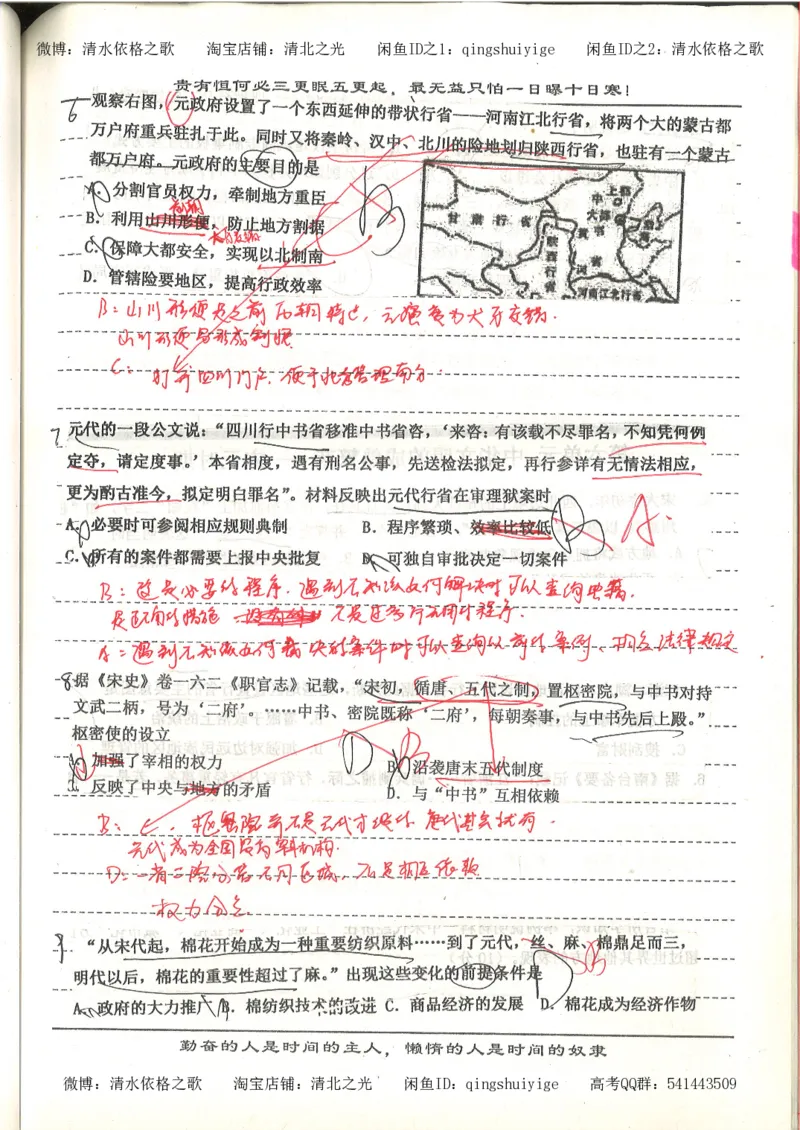 微博：清水依格之歌 淘宝店铺：清北之光 闲鱼ID之1：qingshuiyige 闲鱼ID之2：清水依格之歌
贵有恒何必三更眠五更起，最无益只怕一日曝十日寒！
6 观察右图，元政府设置了一个东西延伸的带状行省——河南江北行省，将两个大的蒙古都
万户府重兵驻扎于此。同时又将秦岭、汉中、北川的险地划归陕西行省，也驻有一个蒙古
都万户府。元政府的主要目的是
A. 分割官员权力，牵制地方重臣
B. 利用山川形便，防止地方割据
犬牙交错
C. 保障大都安全，实现以北制南
D. 管辖险要地区，提高行政效率
上都
中
大都
书
甘肃行省
陕西行省
黄
河
省
河南江北行省
B
B：山川形便是之前历朝特点，元演变为犬牙交错．
山川形便易形成割据
C： 打开四川门户，便于北方管理南方
7 元代的一段公文说：“四川行中书省移准中书省咨，‘来咨：有该载不尽罪名，不知凭何例
定夺，请定度事。’本省相度，遇有刑名公事，先送检法拟定，再行参详有无情法相应，
更为酌古准今，拟定明白罪名”。材料反映出元代行省在审理狱案时
A. 必要时可参阅相应规则典制 B. 程序繁琐、效率比较低
C. 所有的案件都需要上报中央批复 D. 可独自审批决定一切案件
B A
B：这是必要的程序．遇到不知该如何解决时可以查询典籍．
不是还要行不同的程序．
A：遇到不知做如何裁决的案件时可以查询以前的案例、相应法律规定
8 据《宋史》卷一六二《职官志》记载，“宋初，循唐、五代之制，置枢密院，与中书对持
文武二柄，号为‘二府’……中书、密院既称‘二府’，每朝奏事，与中书先后上殿。”
枢密使的设立
A. 加强了宰相的权力 B. 沿袭唐末五代制度
C. 反映了中央与地方的矛盾 D. 与“中书”互相依赖
D B
B： 枢密院并不是元代才提出，唐代甚至就有．
元代成为全国最高军机构．
D：一省二院分管不同区域，不是相互依赖
权力分立
9 “从宋代起，棉花开始成为一种重要纺织原料……到了元代，丝、麻、棉鼎足而三，
明代以后，棉花的重要性超过了麻。”出现这些变化的前提条件是
A. 政府的大力推广 B. 棉纺织技术的改进 C. 商品经济的发展 D. 棉花成为经济作物
勤奋的人是时间的主人，懒惰的人是时间的奴隶
微博：清水依格之歌 淘宝店铺：清北之光 闲鱼ID：qingshuiyige 高考QQ群：541443509